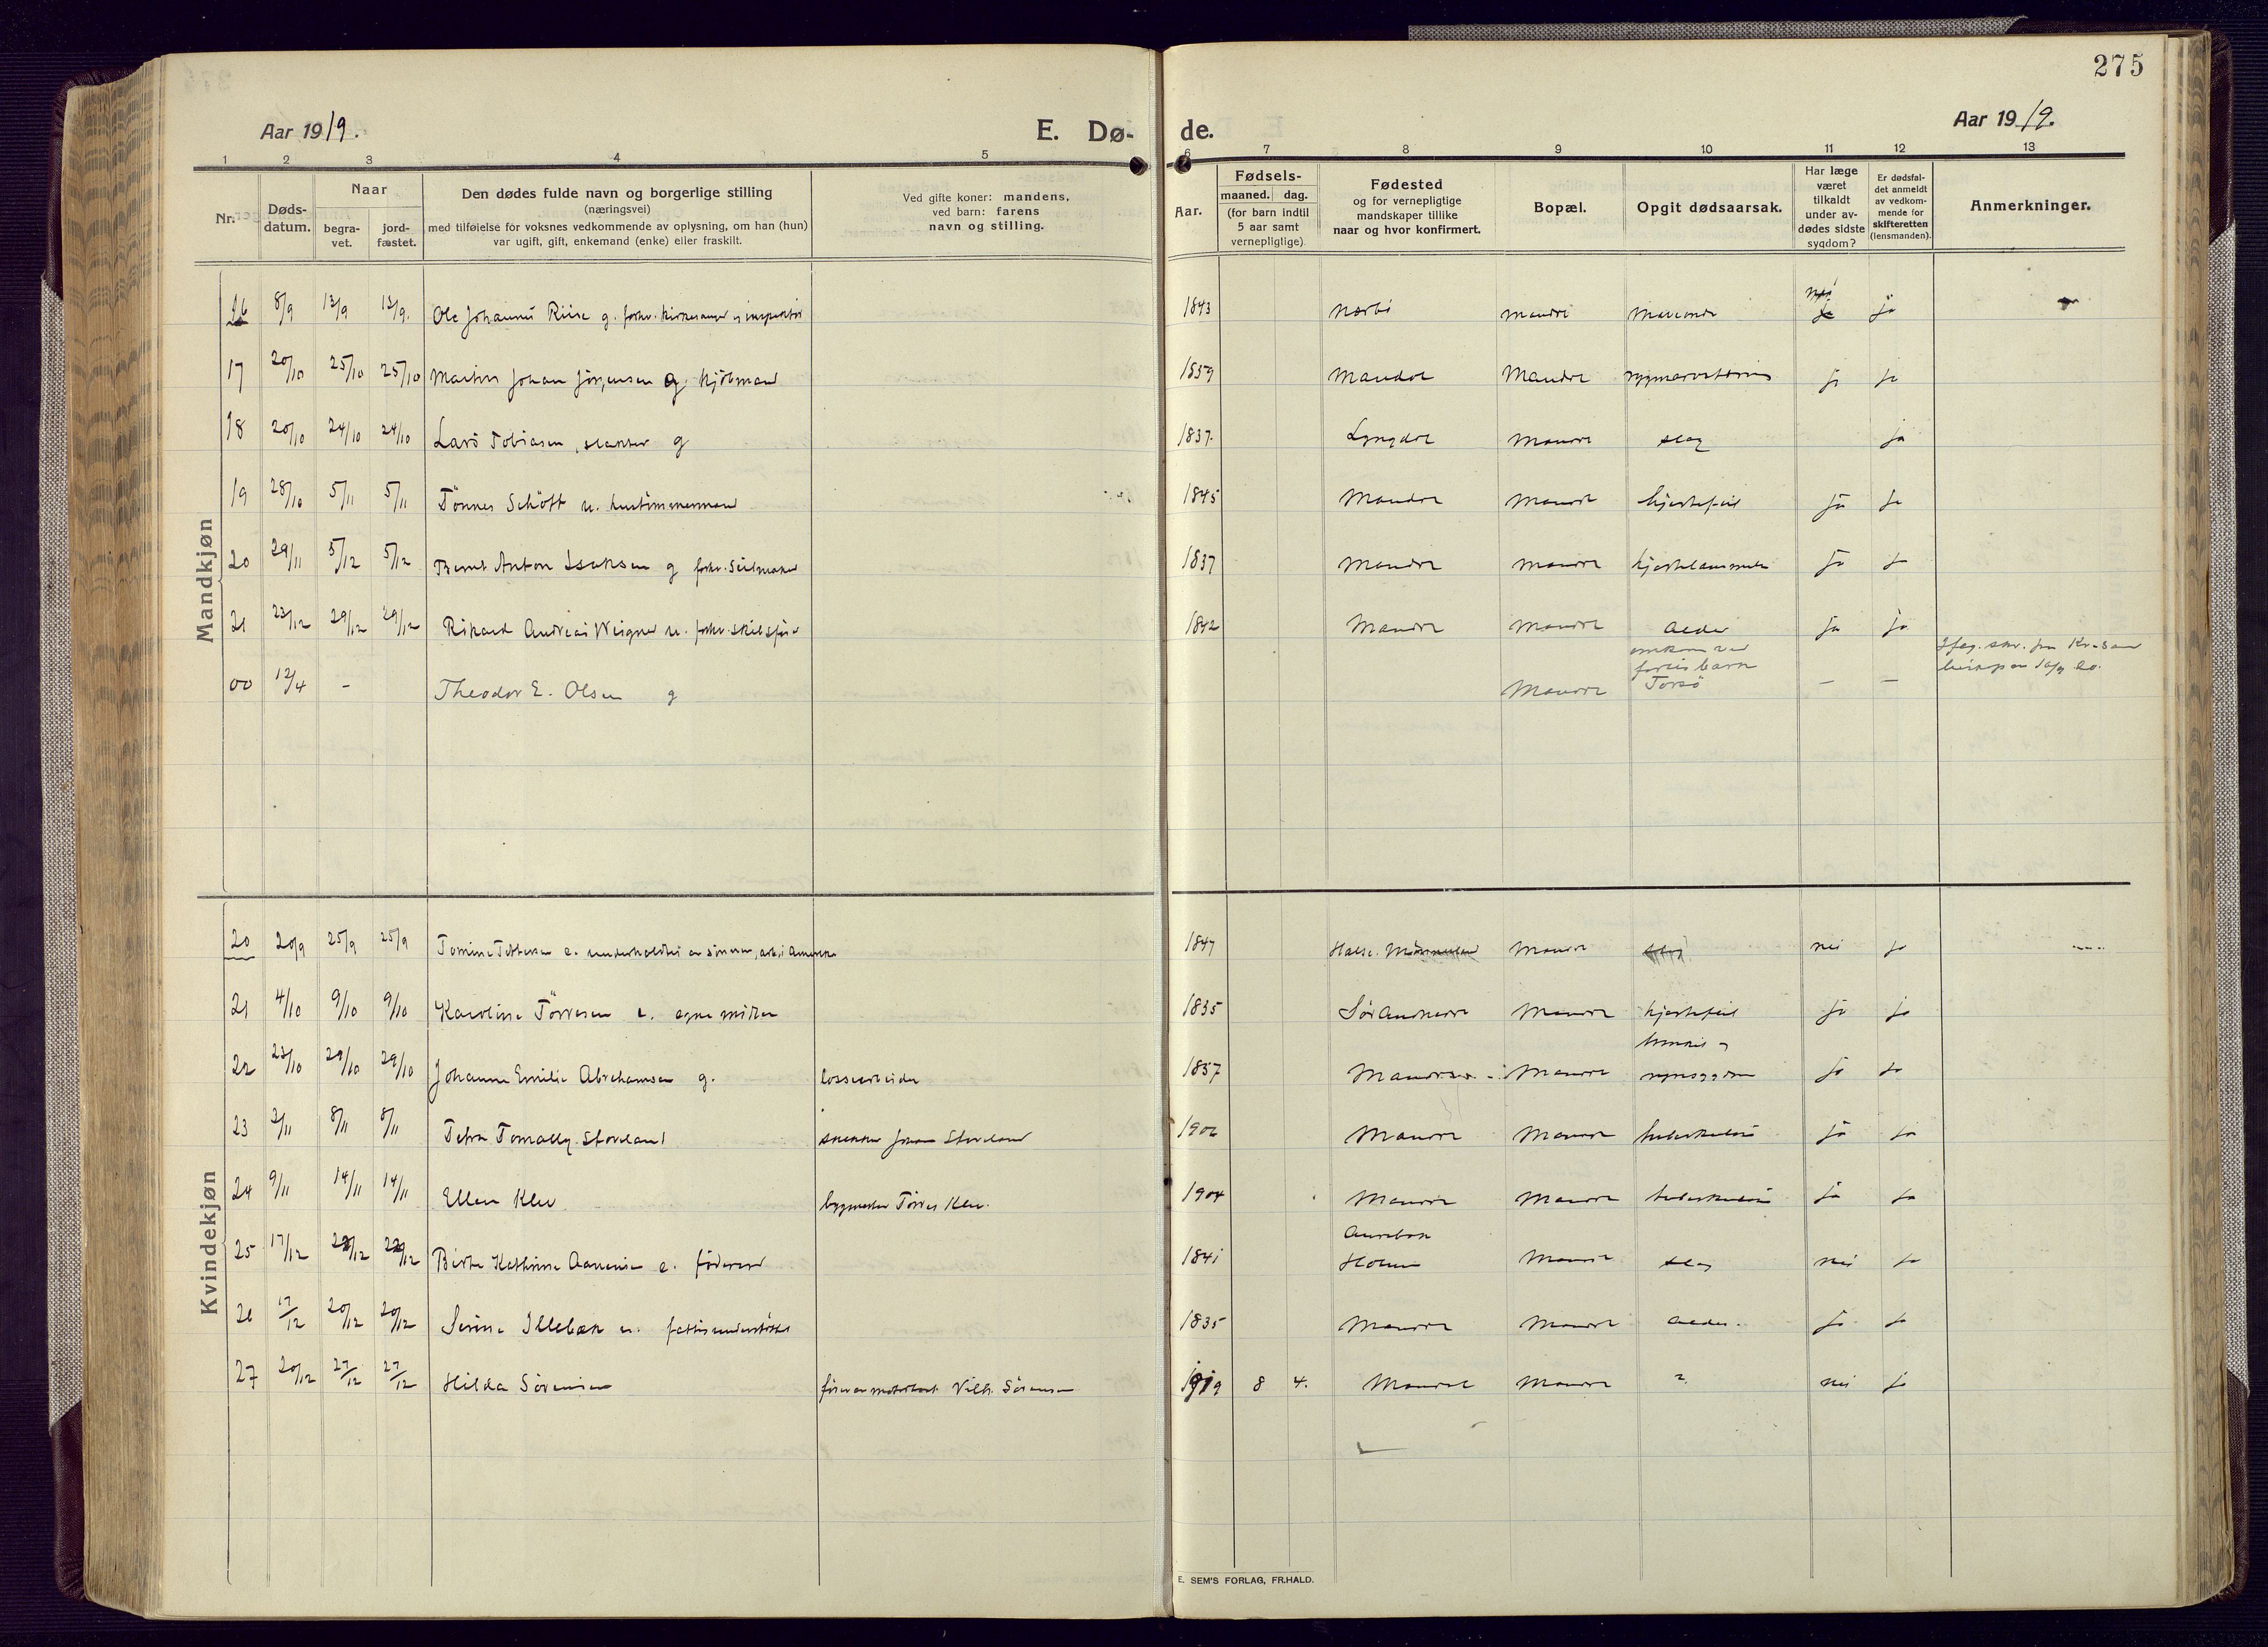 275
Aar 1919.
E. Dø-
de.
Aar 1919.
1 2 3 4 5 6 7 8 9 10 11 12 13
Nr.
Døds-
datum.
Naar
begra-
vet.
jord-
fæstet.
Den dødes fulde navn og borgerlige stilling
(næringsvei)
med tilføielse for voksnes vedkommende av oplysning, om han (hun)
var ugift, gift, enkemand (enke) eller fraskilt.
Ved gifte koner: mandens,
ved barn: farens
navn og stilling.
Aar.
Fødsels-
maaned. dag.
(for barn indtil
5 aar samt
vernepligtige)
Fødested
og for vernepligtige
mandskaper tillike
naar og hvor konfirmert.
Bopæl.
Opgit dødsaarsak.
Har læge
været
tilkaldt
under av-
dødes sidste
sygdom?
Er dødsfal-
det anmeldt
av vedkom-
mende for
skifteretten
(lensmanden).
Anmerkninger.
Mandkjøn
16 8/9 13/9 13/9. Ole Johannes Riise g. forhv. kirkesanger og inspektør 1843 Nærbö Mandal ja
17 20/10 25/10 25/10 Martin Johan Jörgensen g kjöbmand 1859 Mandal Mandal ja ja
18 20/10 24/10 24/10 Lars Tobiasen, slakter g 1837. Lyngdal Mandal slag ja
19 28/10 5/11 5/11 Tönnes Schött u. hustömmermand 1845 Mandal Mandal hjertefeil ja ja
20 29/11 5/12 5/12 Bernt Anton Isaksen g forhv. Seilmaker 1837 Mandal Mandal hjertelammelse ja ja
21 23/12 29/12 29/12 Rikard Andreas Weigner u. forhv. skibsfører 1842 Mandal Mandal alder ja ja
00 12/4 - Theodor E. Olsen g Mandal omkom ved
forlis bark
Torsö - -
Iføg. skr. fra Kr.sand
Kvindekjøn
20 20/9 25/9 25/9 Tomine e. underholdtes av sönnen, arb. i Amerika 1847 Halse. Mandal nei ja
21 4/10 9/10 9/10 Karoline Törresen e. egne midler 1835 Sör Audnedal Mandal hjertefeil ja ja
22 23/10 29/10 29/10 Johanne Emilie Abrahamsen g. lossearbeider 1857 Mandal Mandal bronkit og
nyresygdom ja ja
23 2/11 8/11 8/11 Petra Tomally Storeland snekker Johan Storeland 1906 Mandal Mandal tuberkulose ja ja
24 9/11 14/11 14/11 Ellen Klev bygmester Törres Klev. 1904 Mandal Mandal tuberkulose ja ja
25 17/12 Birte Kathrine Aanensen e. föderaad 1841 Holum Mandal slag nei ja
26 17/12 20/12 20/12 Serine Illebæk u. fattigunderstöttet 1835 Mandal Mandal alder. ja ja
27 20/12 27/12 27/12 Hilda Sörensen fører av motorbaat Vilh. Sörensen 1919 8 4. Mandal Mandal ? nei ja
E. SEM'S FORLAG, FR.HALD.